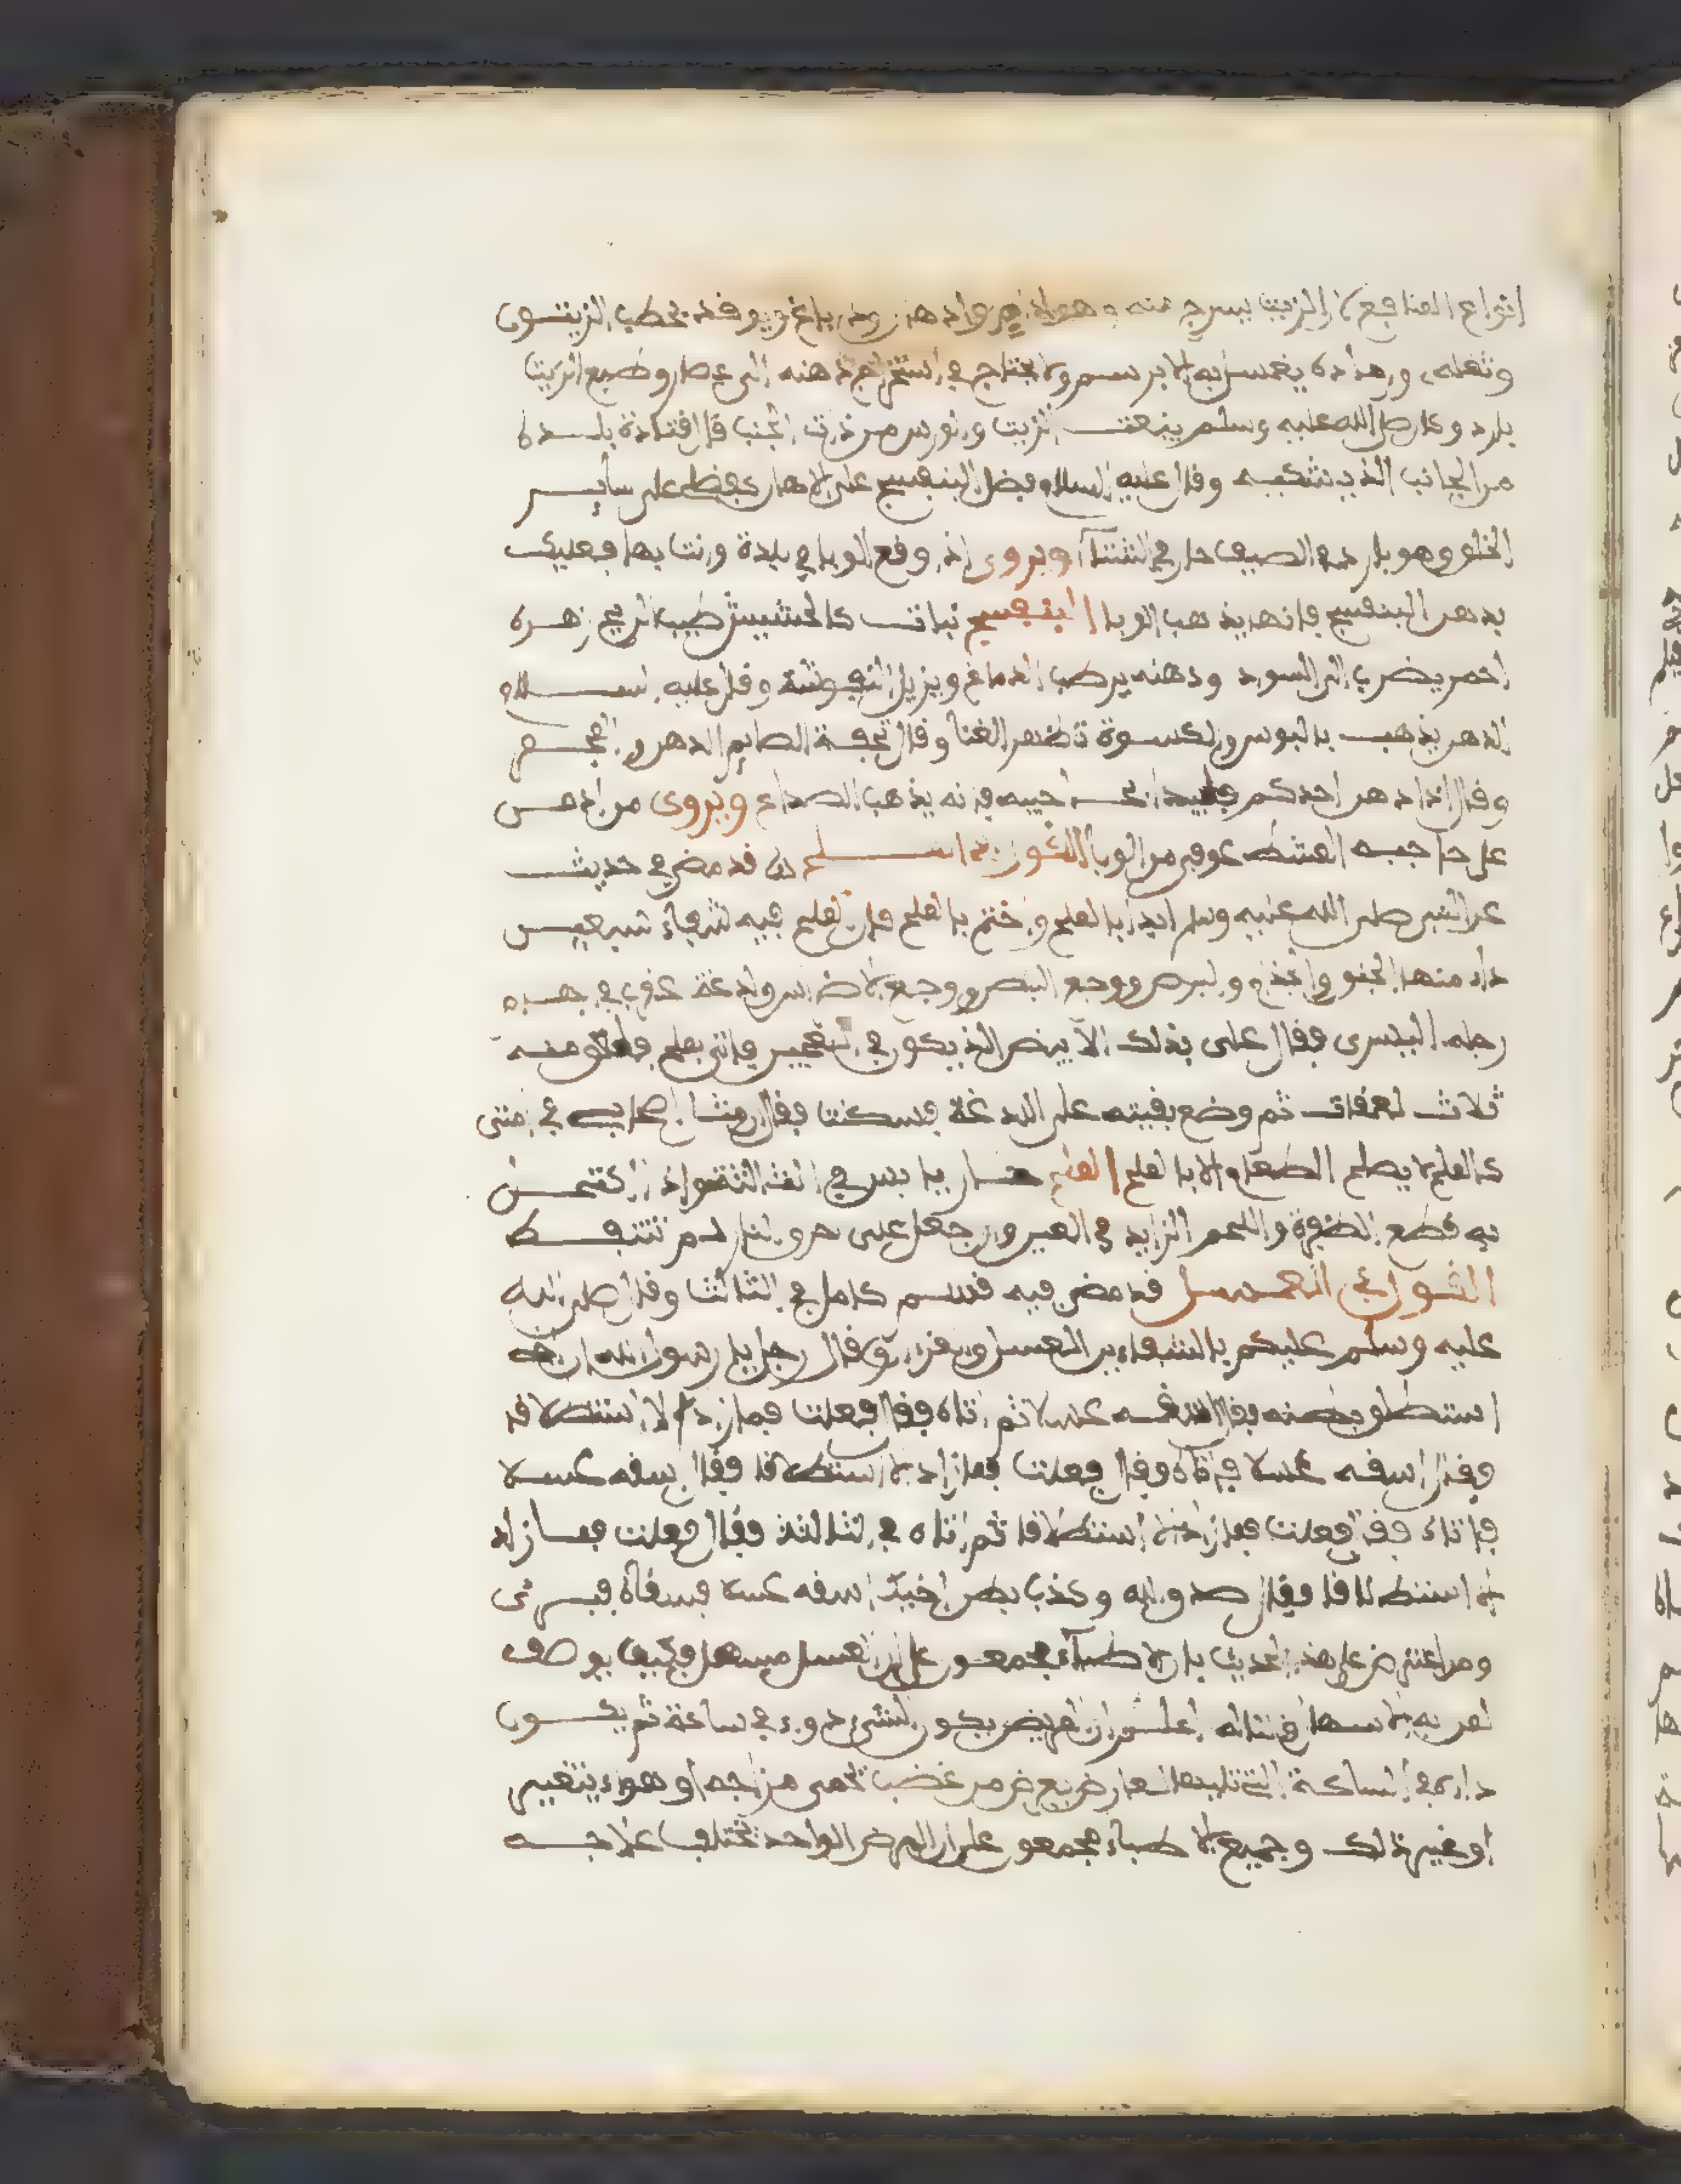 انواع المنافع لان الزيت يسرج منه وهو ادام وادهان ودباغ ويوفد بحطب الزيتون
وثفله ورماده يغسل به الابريسم ولا يحتاج في استخراج دهنه الى عصار وطبع الزيت
بارد وكان صلى الله عليه وسلم ينعت الزيت والورس من ذات الجنب قال قتادة يلده
من الجانب الذي يشتكيه وقال عليه السلام فضل البنفسج على الادهان كفضلى على ساير
الخلق وهو بارد في الصيف حار في الشتاء ويروى اذا وقع الوبا في بلدة وانت بها فعليك
بدهن البنفسج فانه يذهب الوبا البنفسج نبات كالحشيش طيب الريح زهره
احمر يضرب الى السواد ودهنه يرطب الدماغ ويزيل وقال عليه السلام
الدهن يذهب بالبوس والكسوة تظهر الغنا وقال تحفة الصايم الدهن والمجمر
وقال اذا ادهن احدكم فليبدا بحاجبيه فانه يذهب الصداع ويروى من ادهن
على حاجبه المشط عوفي من الوبا القول في الملح قد مضى في حديث
عن النبي صلى الله عليه وسلم ابدا بالملح واختم بالملح فان الملح فيه شفاء سبعين
داء منها الجنون والجذام والبرص ووجع البصر ووجع الاضراس ولدغة عقرب في ابهام
رجله اليسرى فقال علي بذلك الابيض الذي يكون في العجين فاتي بملح فلعق منه
ثلاث لعقات ثم وضع بقيته على اللدغة فسكنت فقال مثل اصحابي في امتي
كالملح لا يصلح الطعام الا بالملح الملح حار يابس في الثالثة واذا اكتحل
به قطع الظفرة واللحم الزايد في العين وان جعل على حرق النار لم تتنفط
القول في العسل قد مضى فيه قسم كامل في الثالث وقال صلى الله
عليه وسلم عليكم بالشفاءين العسل والقرءان وقال رجل يا رسول الله ان اخي
استطلق بطنه فقال اسقه عسلا ثم اتاه فقال فعلت فما زادا الا استطلاقا
فقال اسقه عسلا فاتاه وقال فعلت فما زاد الا استطلاقا فقال اسقه عسلا
فاتاه فقال فعلت فما زاده الا استطلاقا ثم اتاه في الثالثة فقال فعلت فما زاد
الا استطلاقا فقال صدق الله وكذب بطن اخيك اسقه عسلا فسقاه فبرئ
ومن اعترض على هذا الحديث بان الاطباء مجمعون على ان العسل مسهل فكيف يوصف
لمن به الاسهال اعلم ان المريض يكون الشيء دواءه في ساعة ثم يكون
داءه في الساعة التي تليها لعارض يعرض من غضب تحمى مزاجه او هواء يتغير
او غير ذلك وجميع الاطباء مجمعون على ان المرض الواحد يختلف علاجه